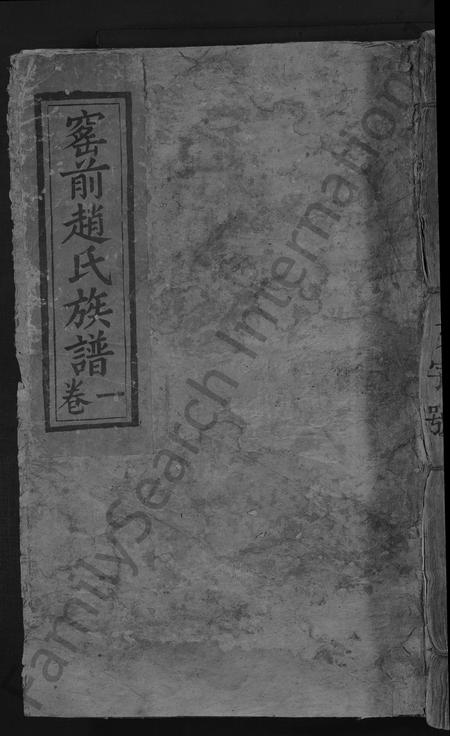 窰前趙氏族譜
卷一
字號
FamilySearch International